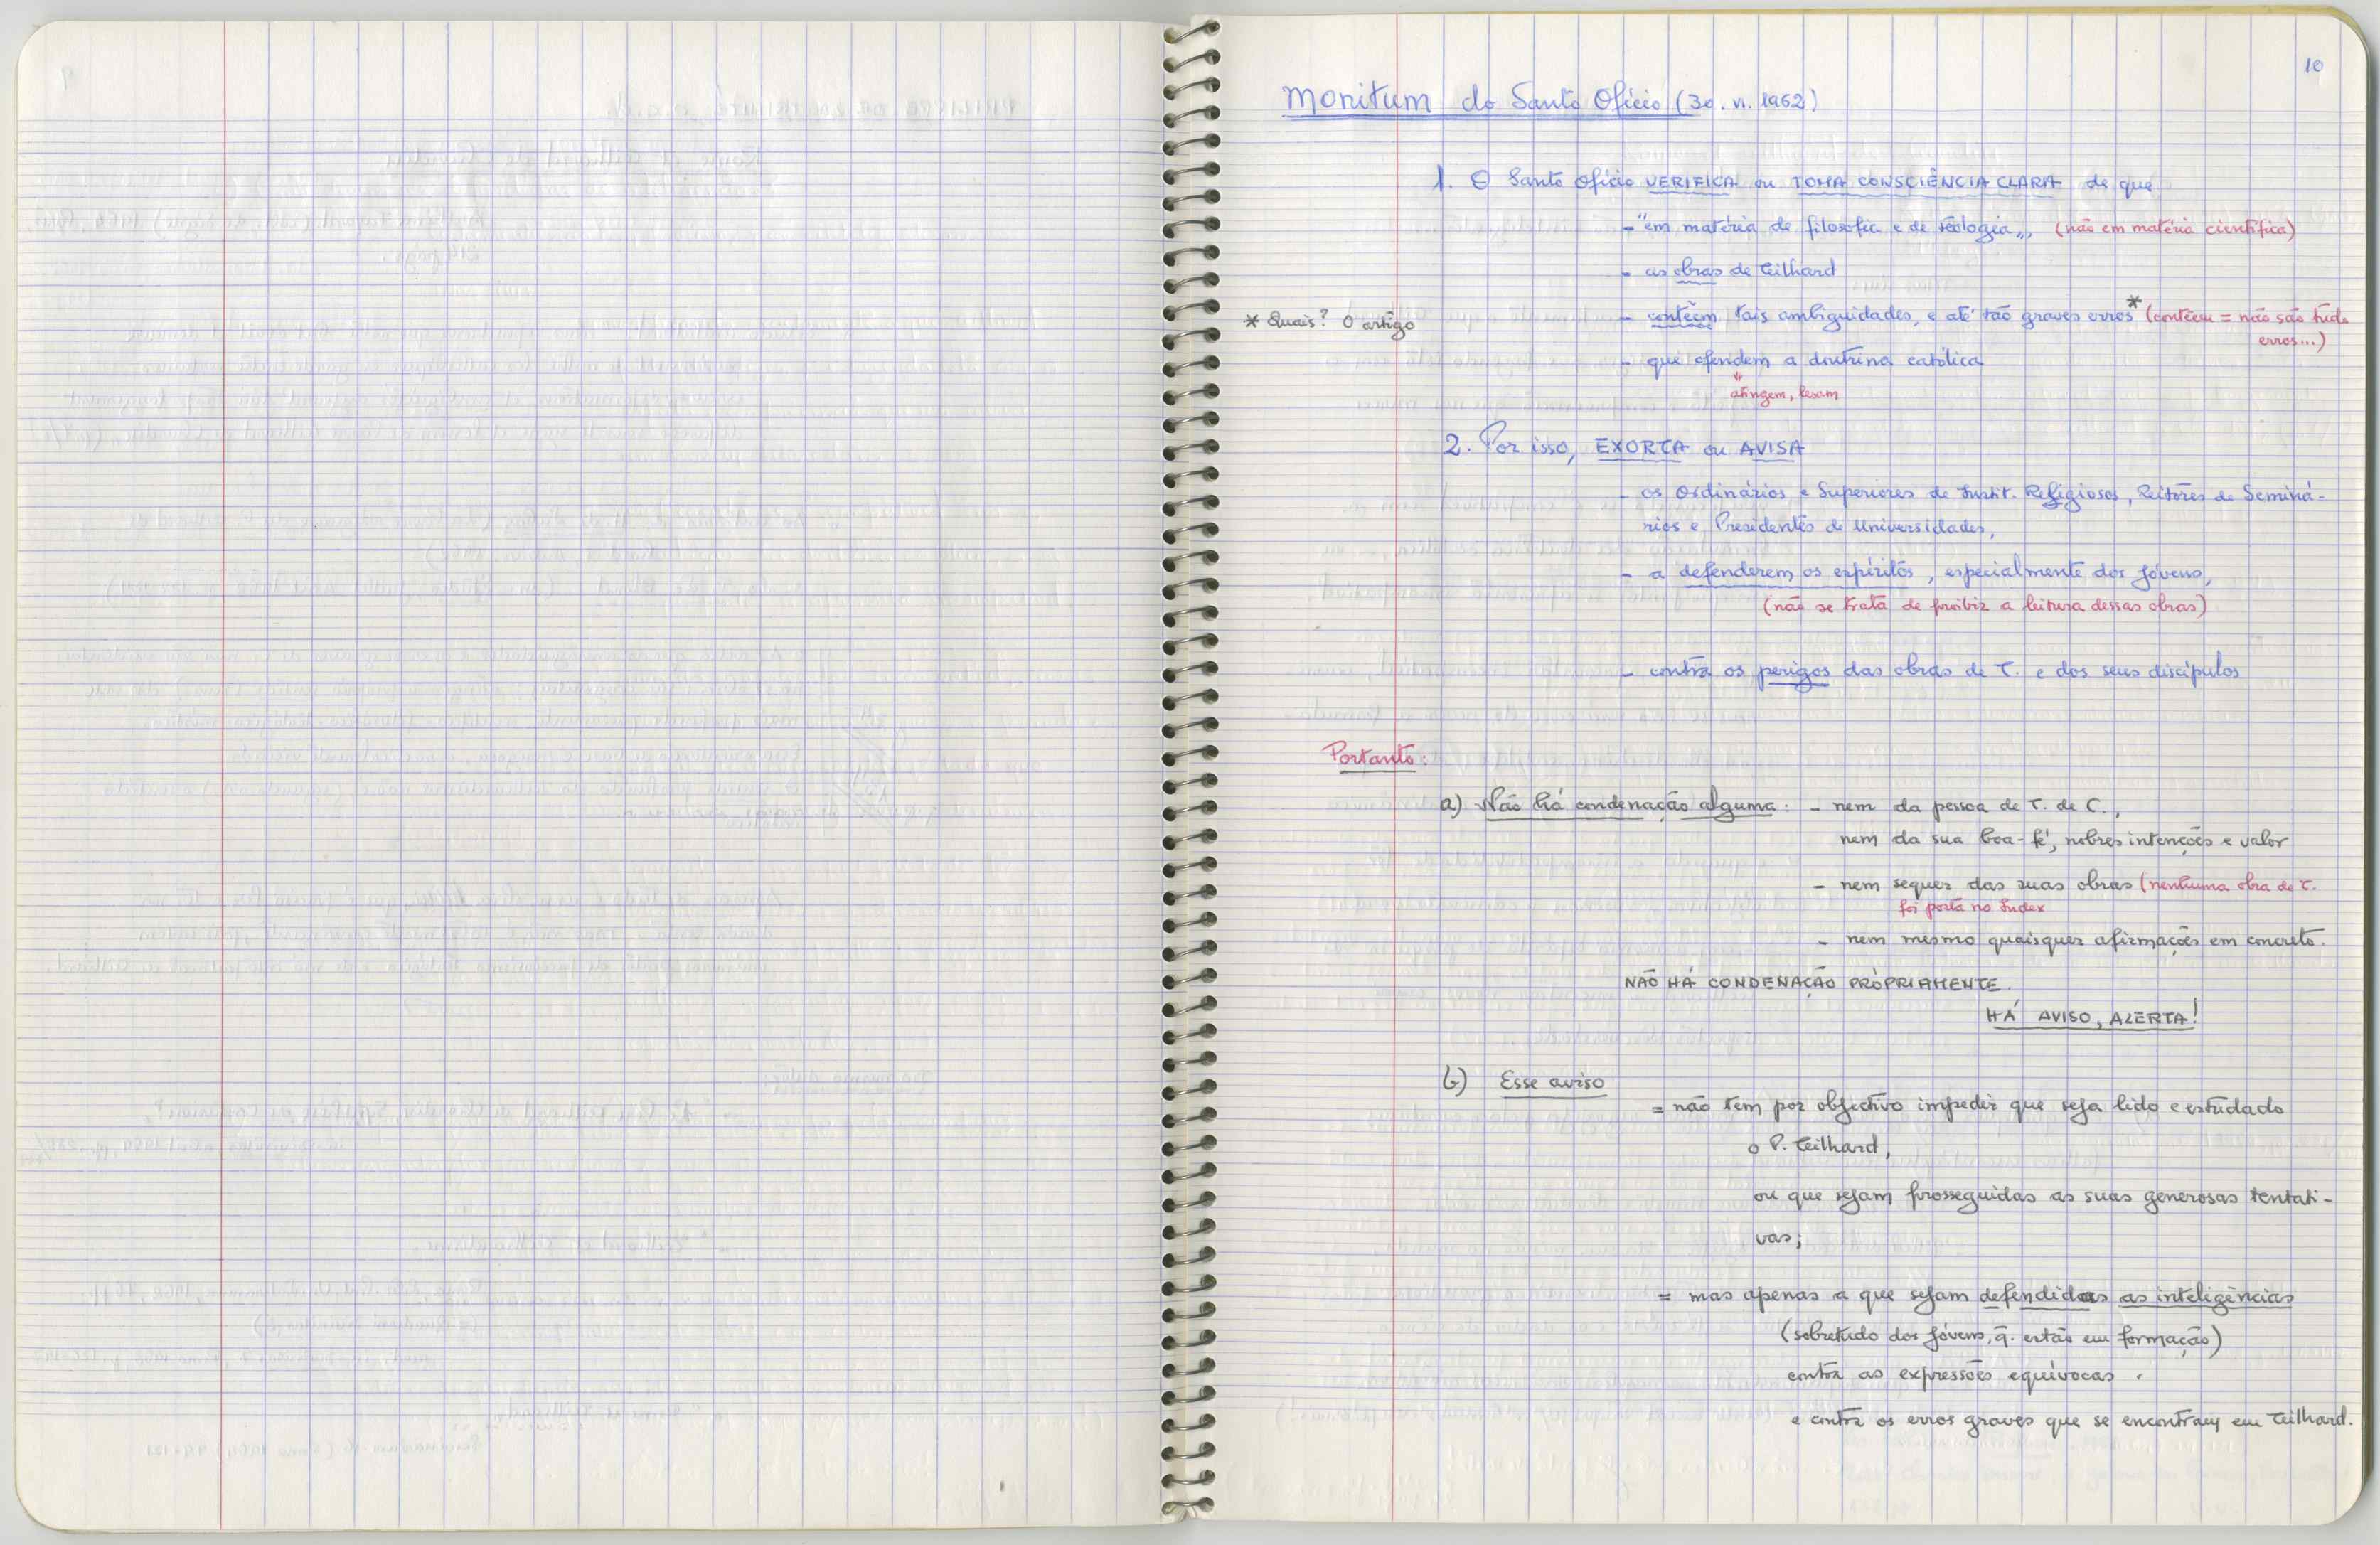 10
Monitum do Santo Ofício (30. VI. 1962)
1. O Santo Ofício VERIFICA ou TOMA CONSCIÊNCIA CLARA de que
- "em matéria de filosofia e de teologia", (não em matéria científica)
- as obras de Teilhard
* Quais? O artigo
- contêem tais ambiguidades, e até tão graves erros* (contêem = não são tudo
erros...)
- que ofendem a doutrina católica
atingem, lesam
2. Por isso, EXORTA ou AVISA
- os Ordinários e Superiores de Instit. Religiosos, Reitores de Seminá-
rios e Presidentes de Universidades,
- a defenderem os espíritos, especialmente dos jóvens,
(não se trata de proibir a leitura dessas obras)
- contra os perigos das obras de T. e dos seus discípulos
Portanto:
a) Não há condenação alguma: - nem da pessoa de T. de C.,
nem da sua boa-fé, nobres intenções e valor
- nem sequer das suas obras (nenhuma obra de T.
foi posta no Index
- nem mesmo quaisquer afirmações em concreto.
NÃO HÁ CONDENAÇÃO PRÒPRIAMENTE.
HÁ AVISO, ALERTA!
b) Esse aviso
= não tem por objectivo impedir que seja lido e estudado
o P. Teilhard,
ou que sejam prosseguidas as suas generosas tentati-
vas;
= mas apenas a que sejam defendidas as inteligências
(sobretudo dos jóvens, q̃. estão em formação)
contra as expressões equívocas.
e contra os erros graves que se encontram em Teilhard.